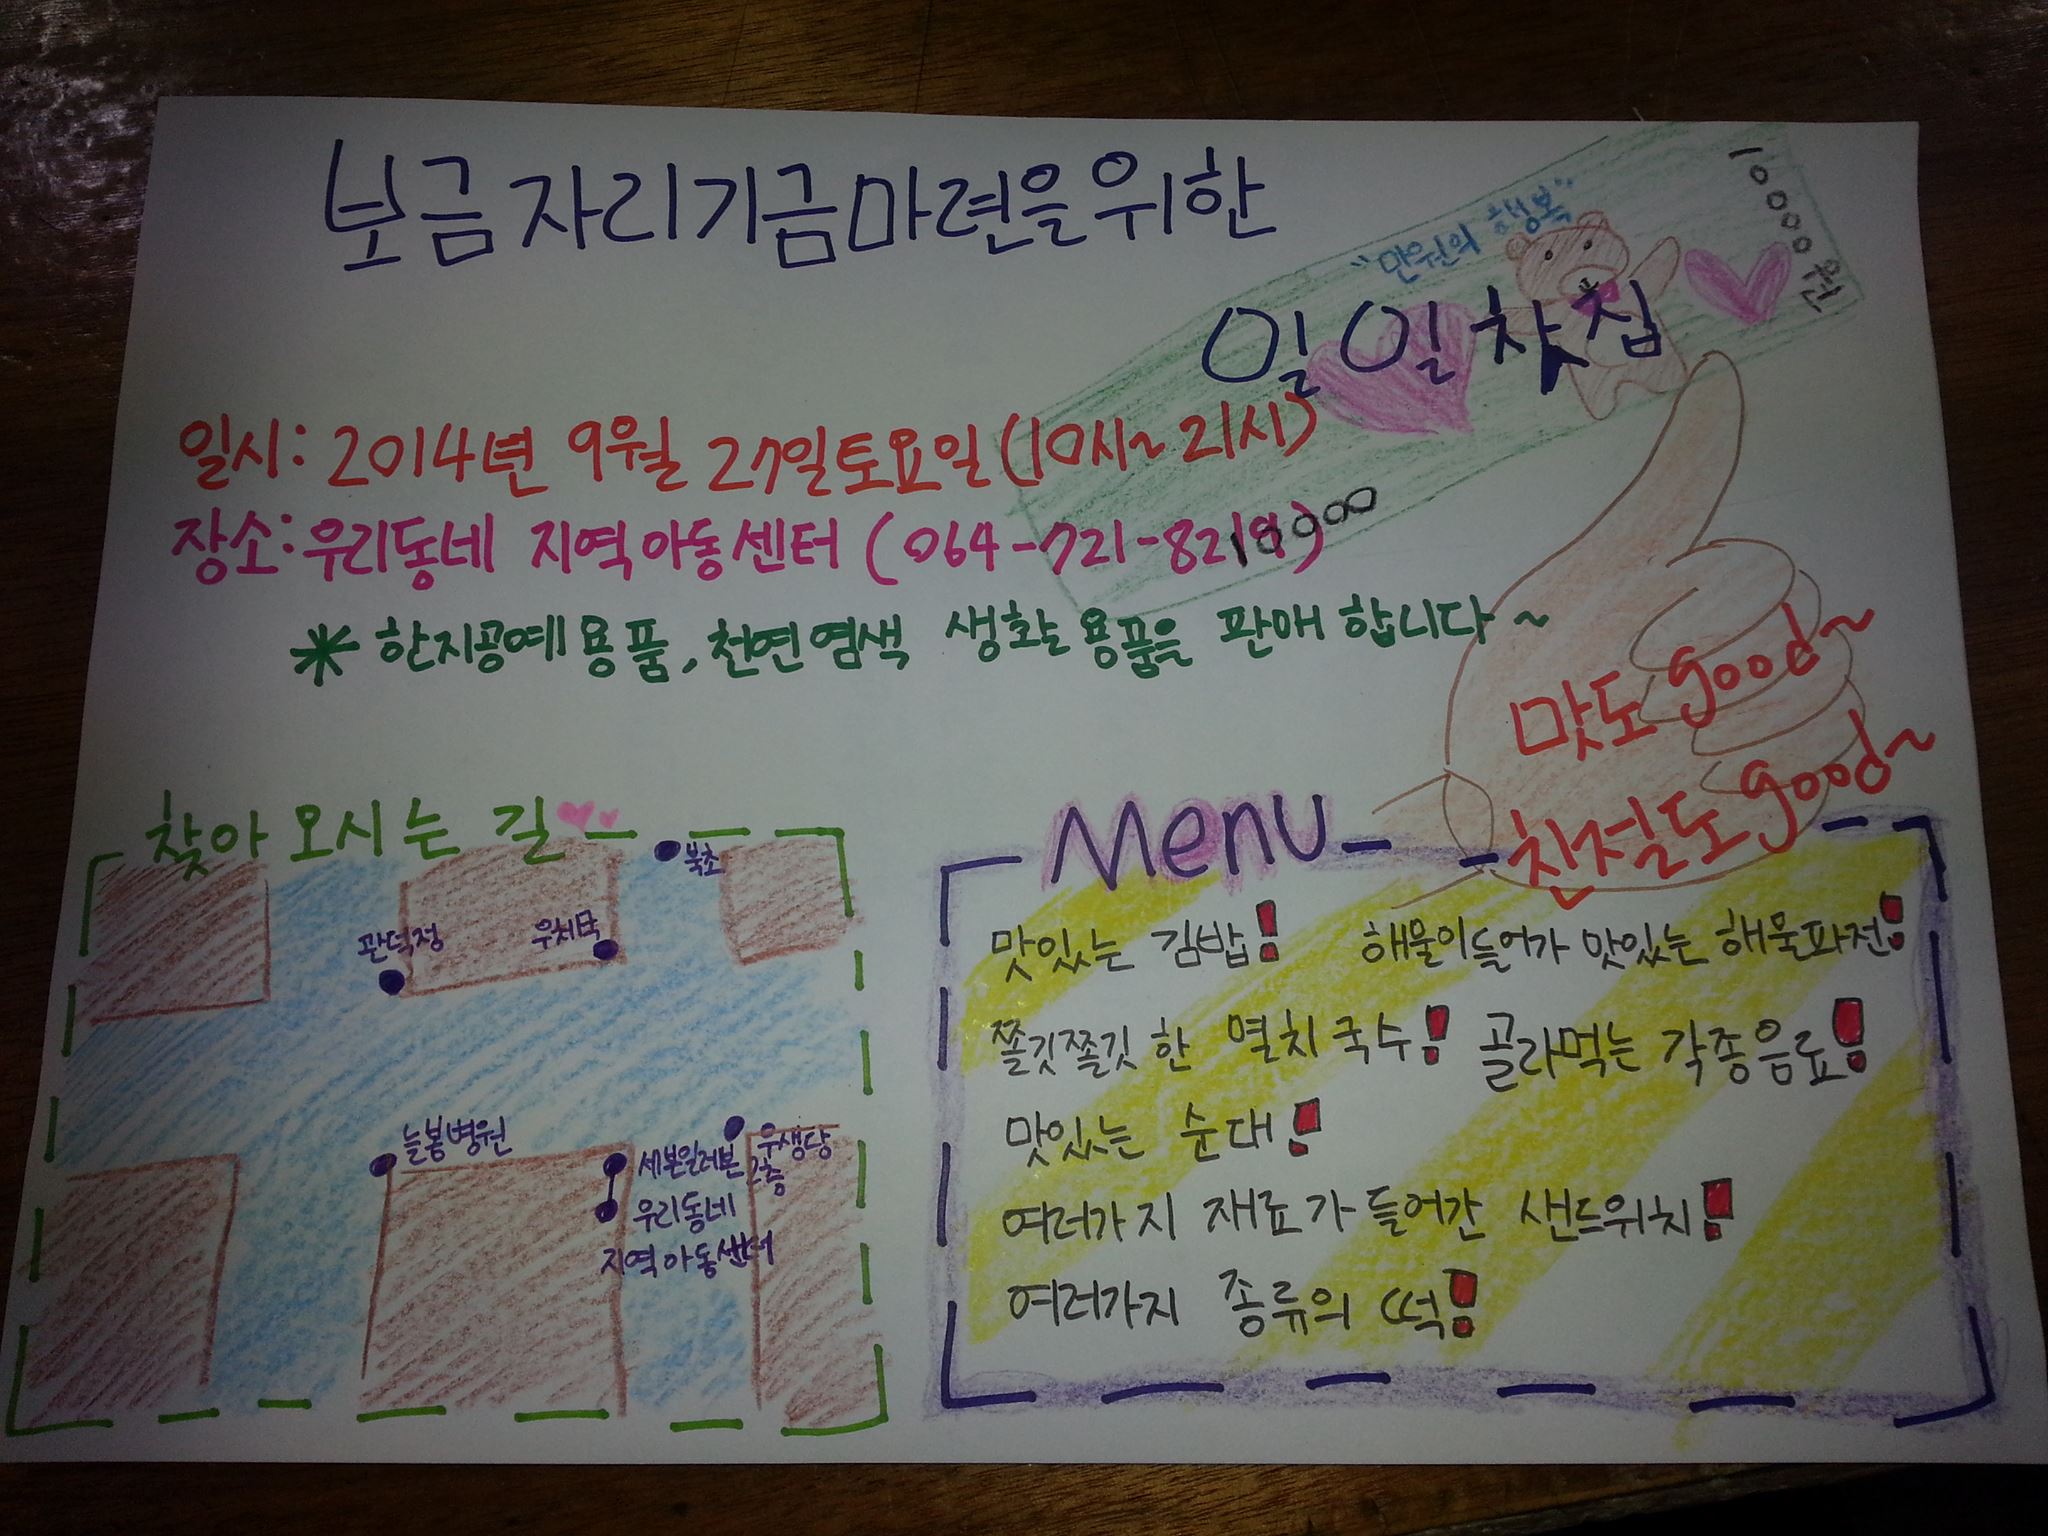 보금자리기금마련을위한
"만원의 행복"
10000원
일일찻집
일시: 2014년 9월 27일토요일(10시~21시)
장소:우리동네 지역아동센터 (064-721-8219)
10000
* 한지공예용품,천연염색 생활용품을 판매합니다~
맛도 good~
친절도 good~
찾아오시는 길
북초
관덕정
우체국
늘봄병원
세븐일레븐 2층
우생당
우리동네
지역아동센터
Menu
맛있는 김밥!
해물이들어가 맛있는 해물파전!
쫄깃쫄깃한 멸치국수!
골라먹는 각종음료!
맛있는 순대!
여러가지 재료가 들어간 샌드위치!
여러가지 종류의 떡!